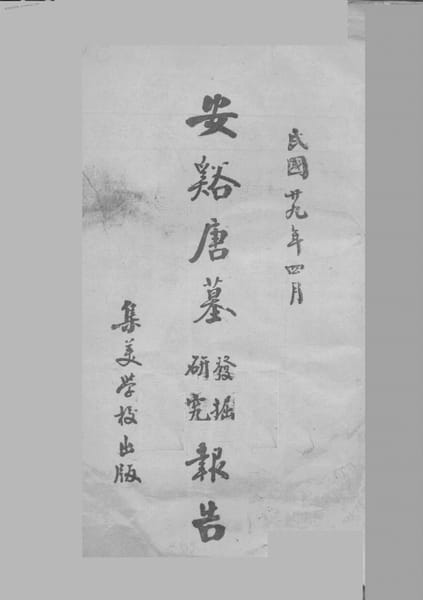 民國廿九年四月
安谿唐墓發掘研究報告
集美学校出版